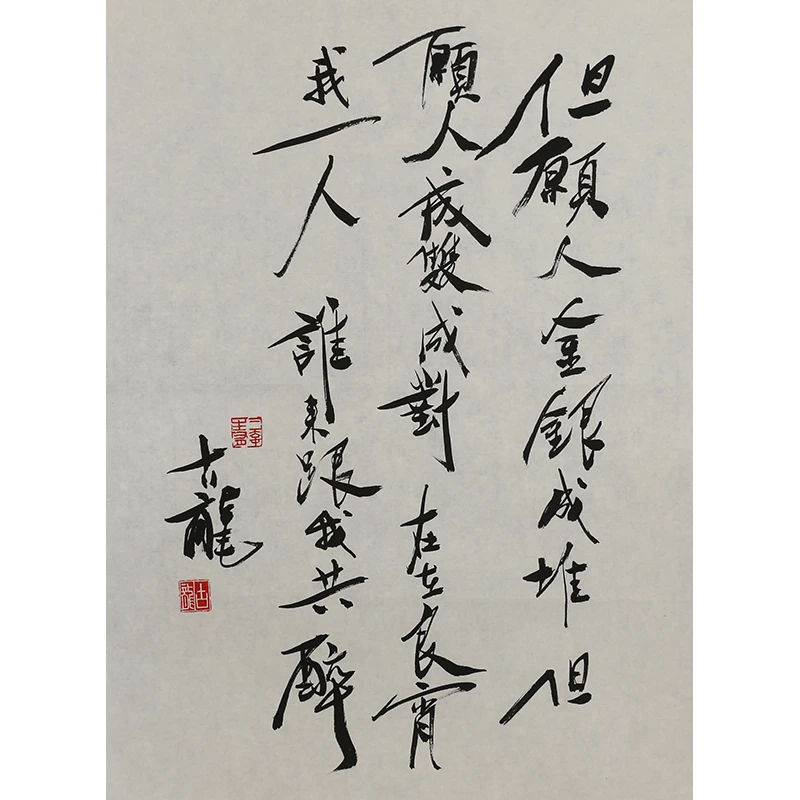 但願人金銀成堆但
願人成雙成對在良宵
我一人誰來跟我共醉
古龍
古龍